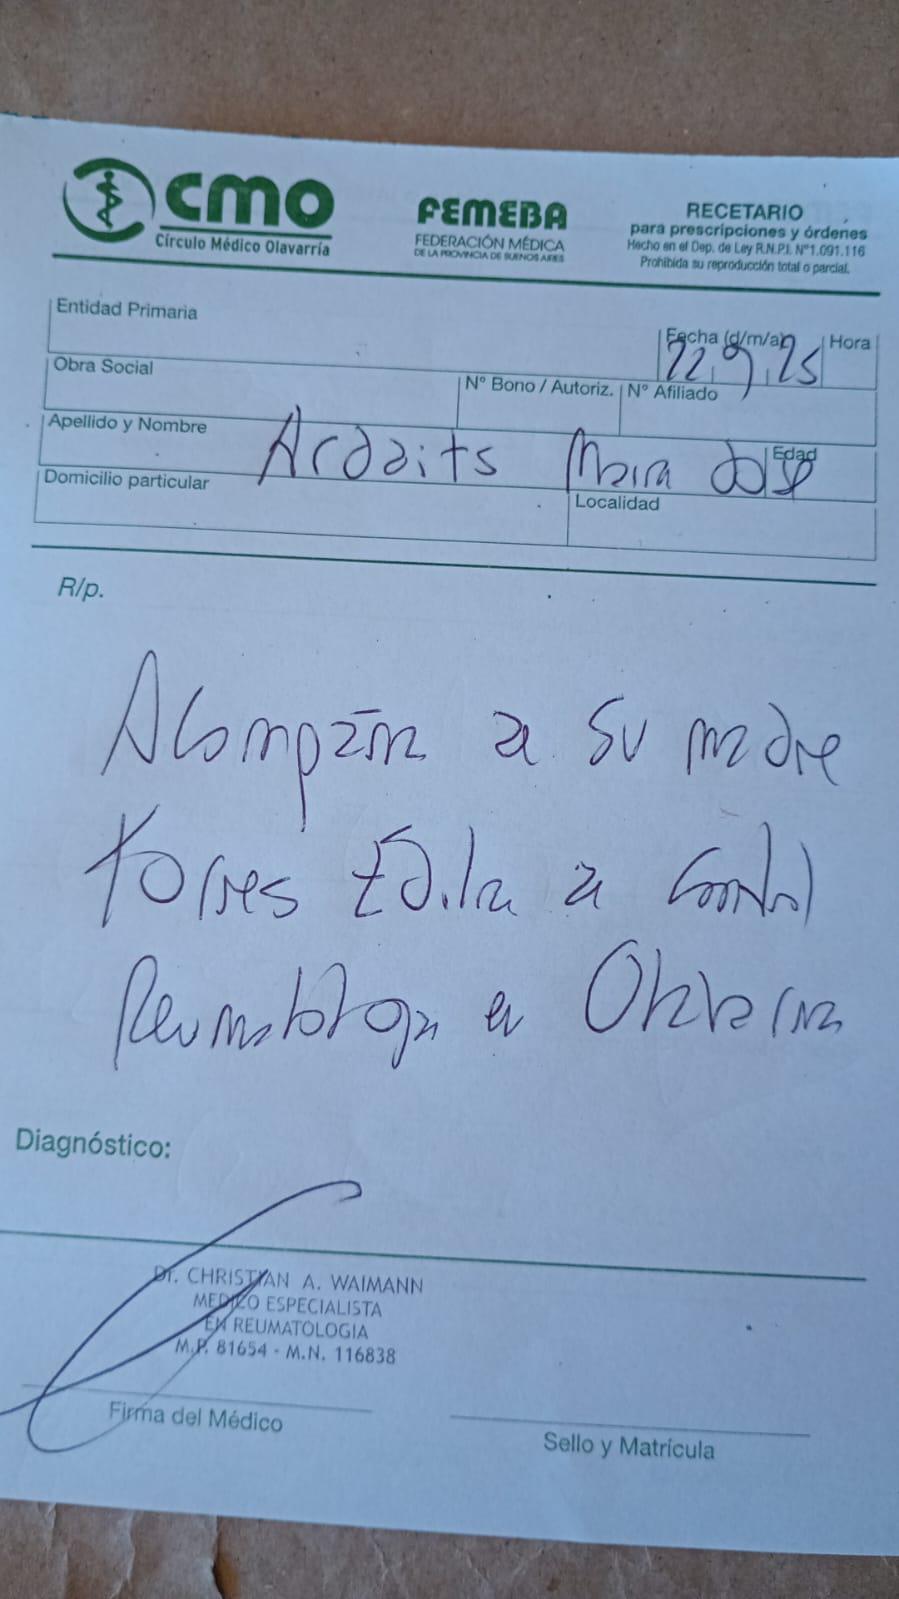 CMO
Círculo Médico Olavarría
FEMEBA
FEDERACIÓN MÉDICA
DE LA PROVINCIA DE BUENOS AIRES
RECETARIO
para prescripciones y órdenes
Hecho en el Dep. de Ley R.N.P.I. Nº1.091.116
Prohibida su reproducción total o parcial.
Entidad Primaria
Fecha (d/m/a) 22 9 25
Hora
Obra Social
Nº Bono / Autoriz.
Nº Afiliado
Apellido y Nombre Ardaits Maria José
Edad
Domicilio particular
Localidad
R/p.
Acompaña a su madre
Torres Edila a control
Reumatologia en Olavarria
Diagnóstico:
Dr. CHRISTIAN A. WAIMANN
MEDICO ESPECIALISTA
EN REUMATOLOGIA
M.P. 81654 - M.N. 116838
Firma del Médico
Sello y Matrícula